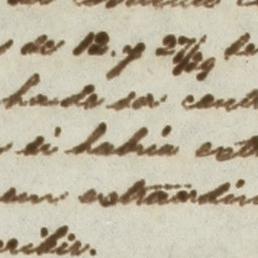 de 12. y 27/29 de
ha de ser cont
si habia ext
em extraordin
cribir.